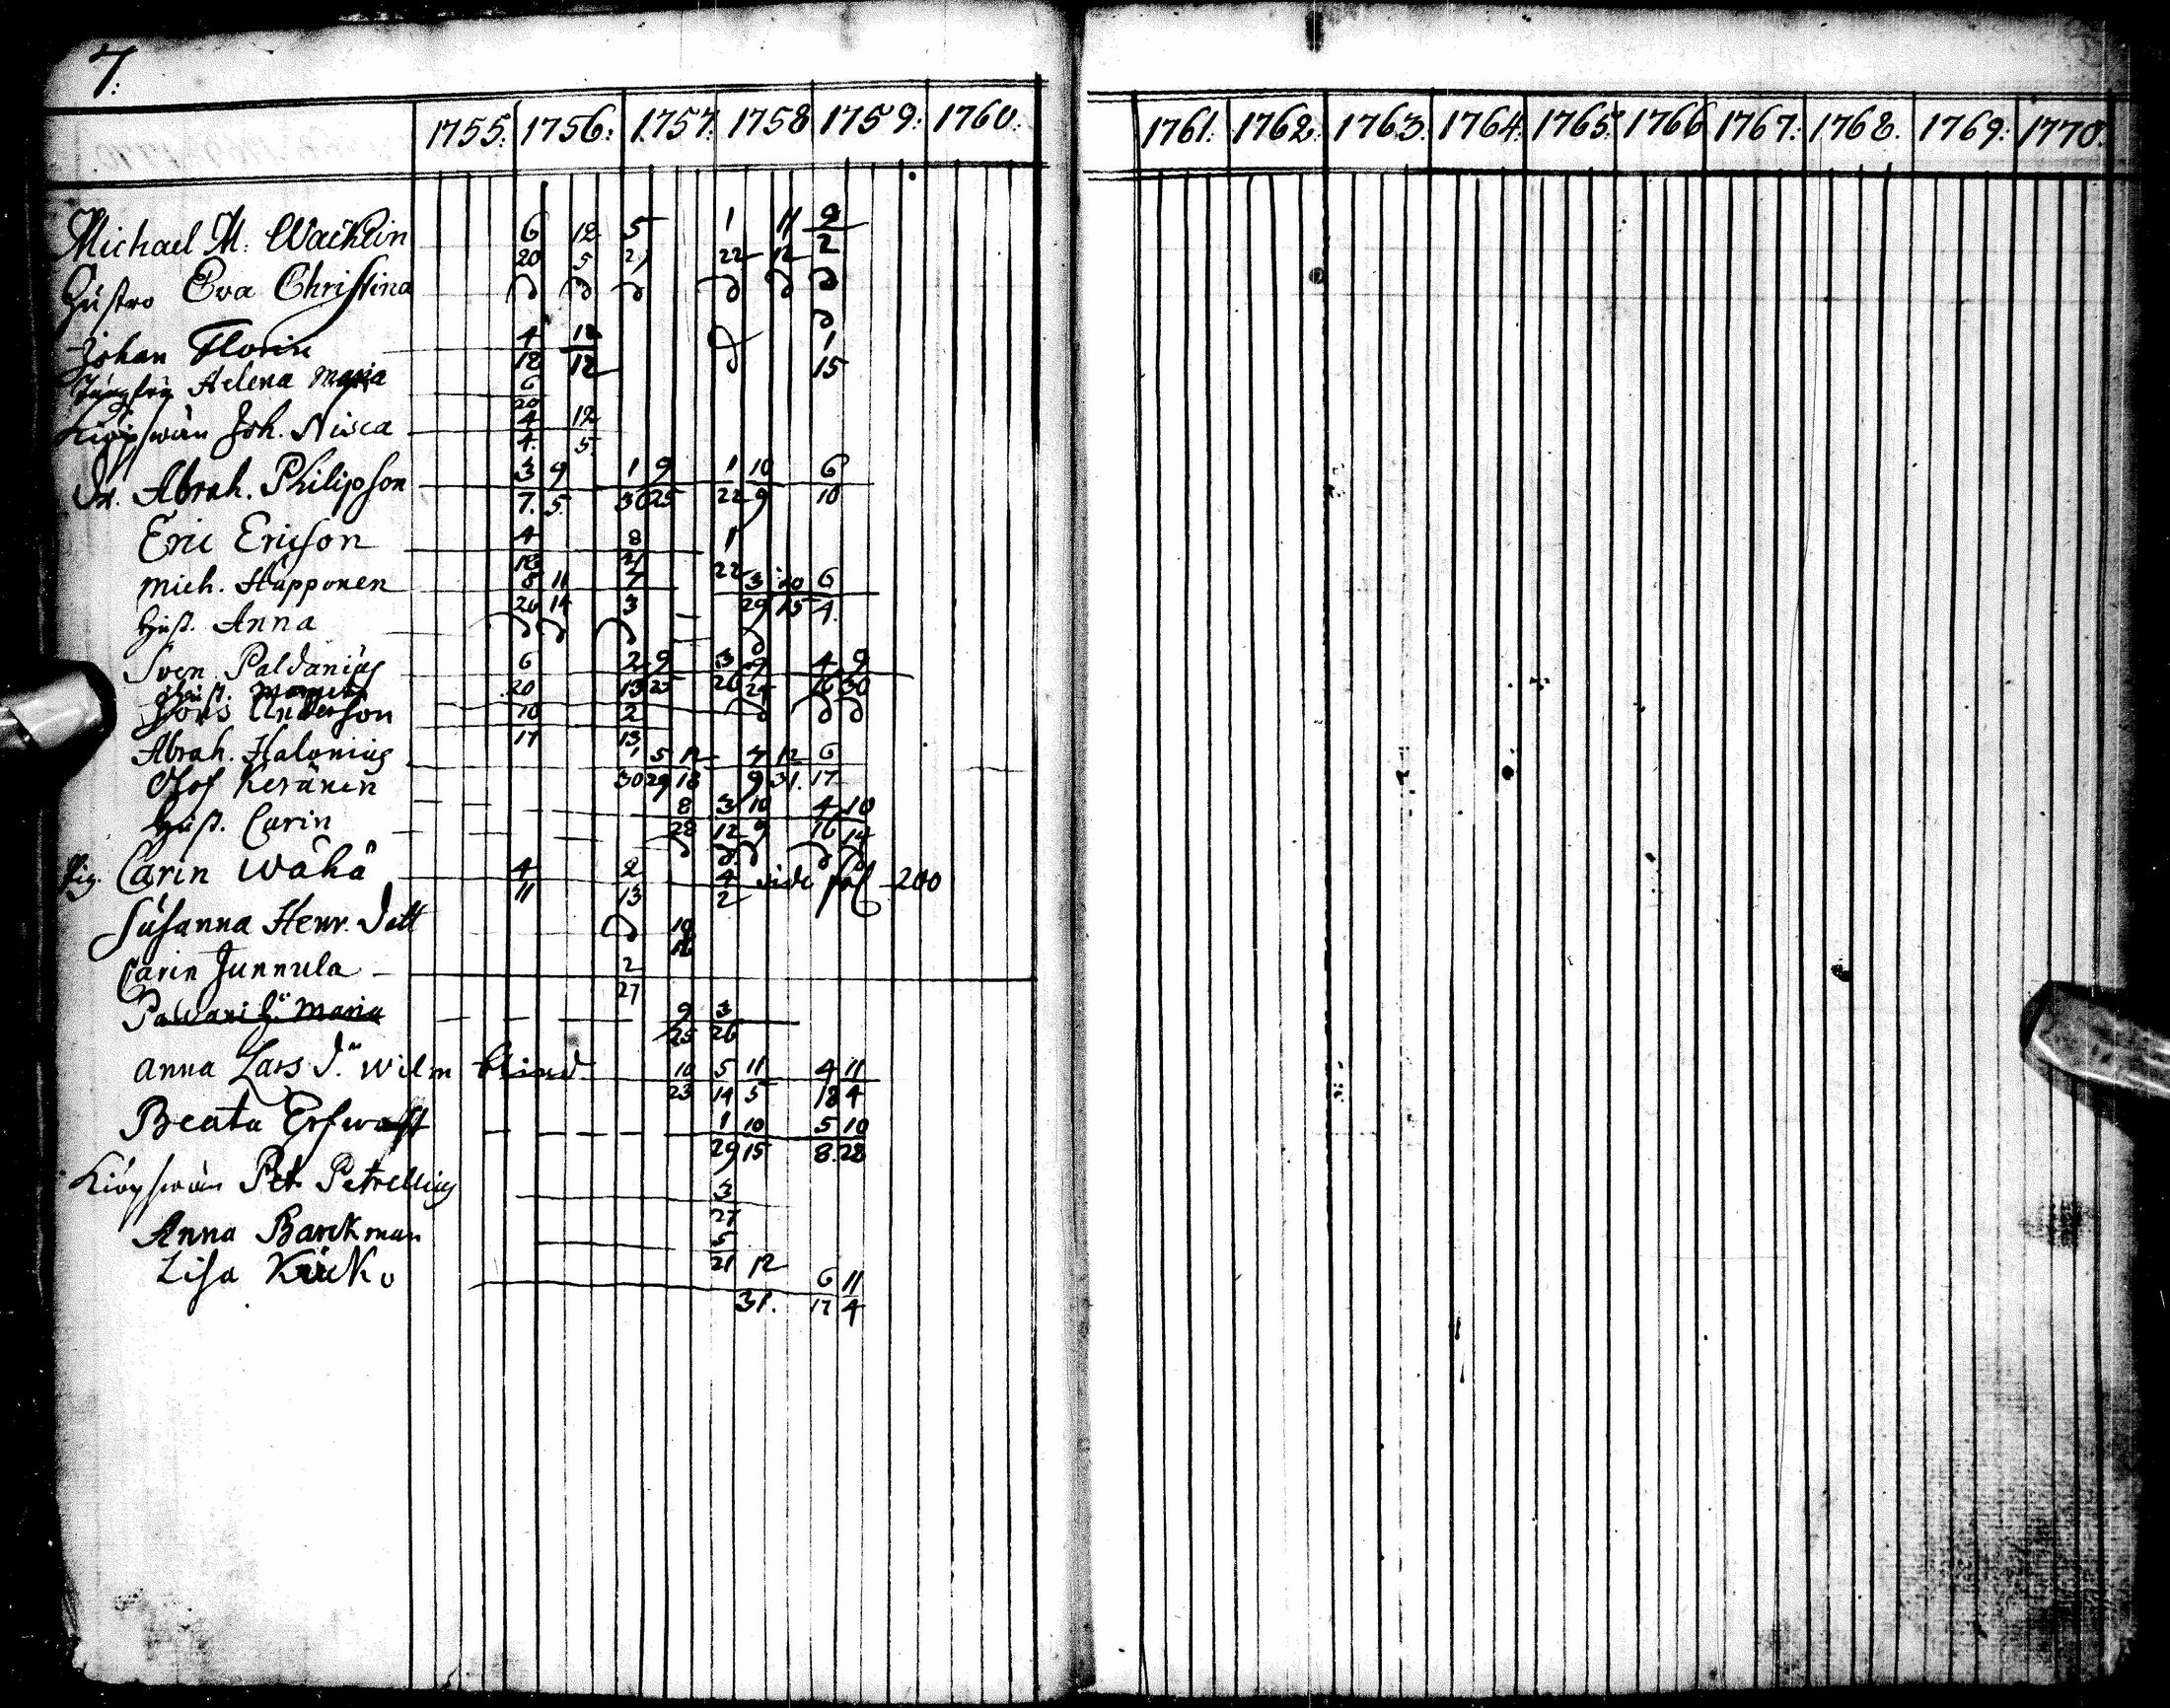 7.
1755. 1756. 1757. 1758 1759. 1760. 1761. 1762. 1763. 1764. 1765. 1766 1767. 1768. 1769. 1770.
6 12 5 1 11 9
Michael M. Wacklin
20 5 21 22 12 2
Hustro Eva Christina
4 12 1
Johan Florin
18 12 15
Jungfru Helena Maria 6
20
4 12
Kiöpswän Joh. Nisca
4. 5.
3 9 1 9 1 10 6
Dr. Abrah. Philipson
7. 5. 30 25 22 9 10
4 8 1
Eric Ericson
18 21 22
Mich. Happonen 8 11 7 3 10 6
26 14 3 29 15 4.
Hust. Anna
Sven Paldanius 6 2 9 3 9 4 9
20 13 25 26 29 16 30
Hust.
Anderson 10 2
17 13
Abrah. Halonius 1 5 12 4 12 6
30 29 18 9 31. 17
Olof Keränen
8 3 10 4 10
Hust. Carin 28 12 9 16 14
Pig. Carin Wähä 4 2 4 vide fol 200
11 13 2
Susanna Henr. Dott 10
Carin Junnula 2
27
Maria 9 3
25 26
Anna Lars D. Wilm blind 10 5 11 4 11
23 14 5 18 4
Beata 1 10 5 10
29 15 8. 28
Kiöpswän Pet. Petrellius 3
27
Anna Barckman 5
21 12
Lisa 6 11
31. 17 4